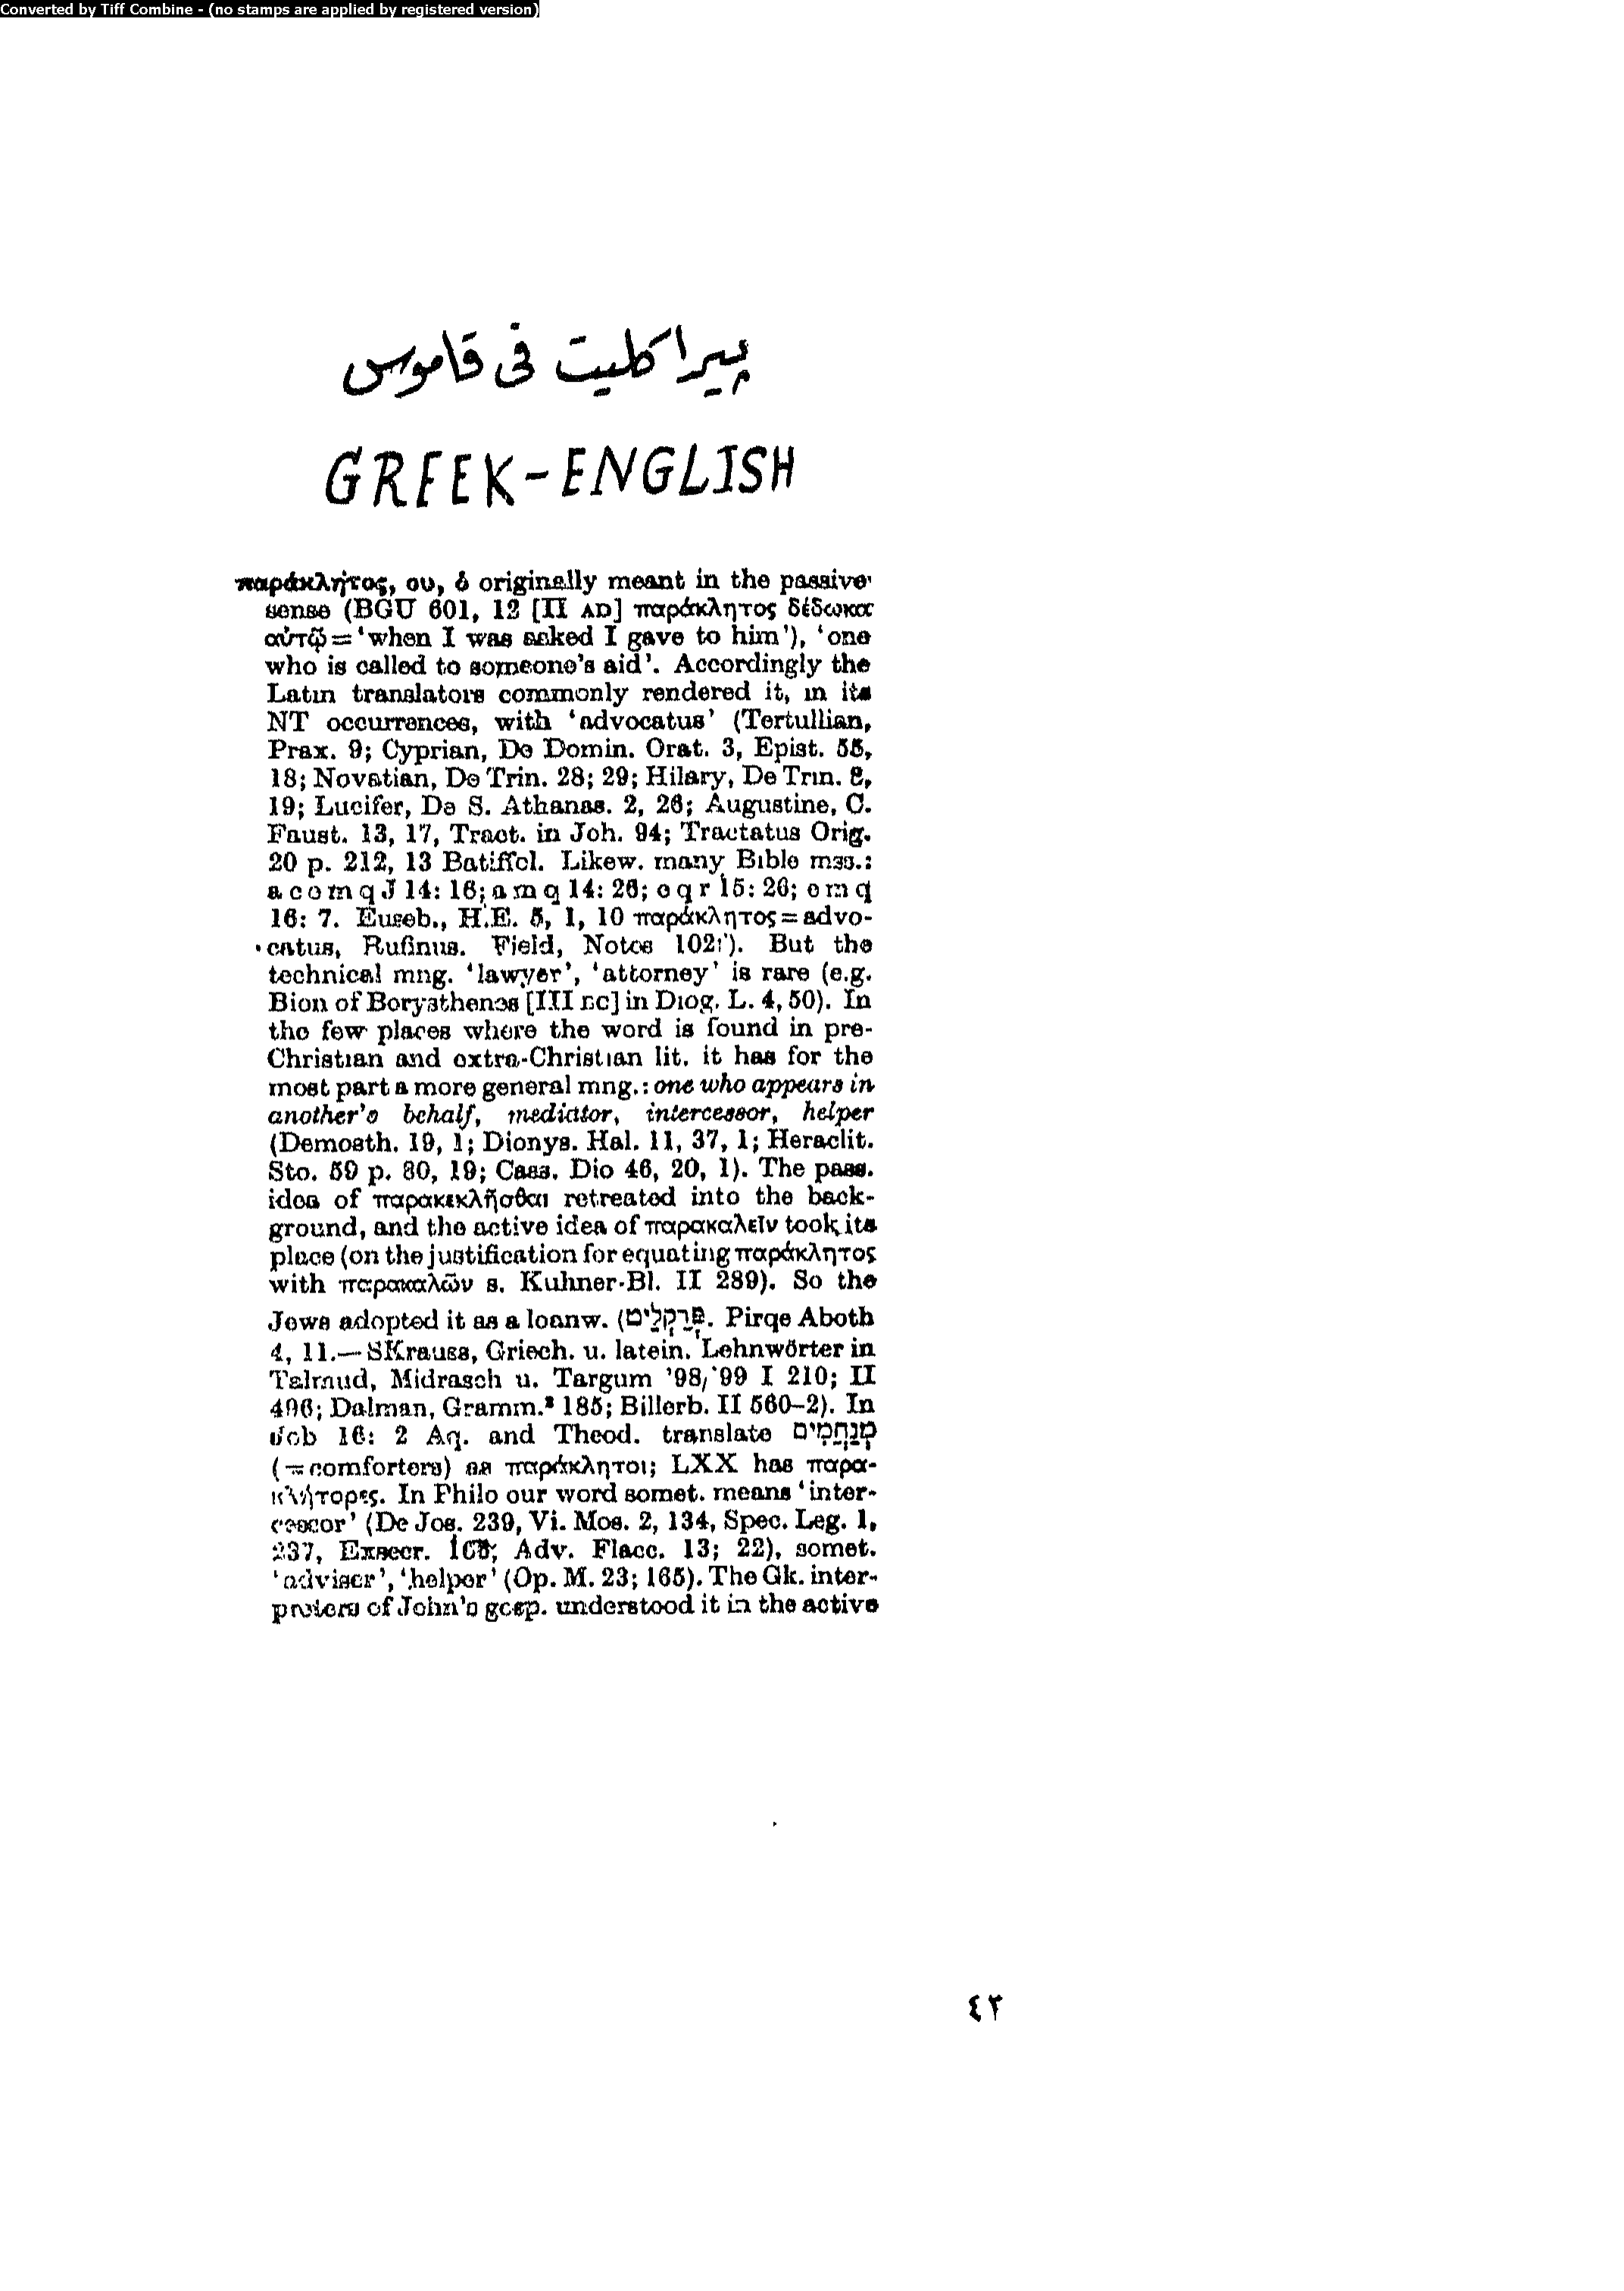 Converted by Tiff Combine - (no stamps are applied by registered version)
پیراکلیت فى قاموس
GREEK-ENGLISH
παράκλητος, ου, ὁ originally meant in the passive
sense (BGU 601, 12 [II AD] παράκλητος δέδωκα
αὐτῷ=‘when I was asked I gave to him’), ‘one
who is called to someone’s aid’. Accordingly the
Latin translators commonly rendered it, in its
NT occurrences, with ‘advocatus’ (Tertullian,
Prax. 9; Cyprian, De Domin. Orat. 3, Epist. 55,
18; Novatian, De Trin. 28; 29; Hilary, De Trin. 8,
19; Lucifer, De S. Athanas. 2, 26; Augustine, C.
Faust. 13, 17, Tract. in Joh. 94; Tractatus Orig.
20 p. 212, 13 Batiffol. Likew. many Bible mss.:
a c e m q J 14: 16; a m q 14: 26; e q r 15: 26; e m q
16: 7. Euseb., H.E. 5, 1, 10 παράκλητος=advo-
catus, Rufinus. Field, Notes 102f). But the
technical mng. ‘lawyer’, ‘attorney’ is rare (e.g.
Bion of Borysthenes [III BC] in Diog. L. 4, 50). In
the few places where the word is found in pre-
Christian and extra-Christian lit. it has for the
most part a more general mng.: one who appears in
another’s behalf, mediator, intercessor, helper
(Demosth. 19, 1; Dionys. Hal. 11, 37, 1; Heraclit.
Sto. 59 p. 80, 19; Cass. Dio 46, 20, 1). The pass.
idea of παρακεκλῆσθαι retreated into the back-
ground, and the active idea of παρακαλεῖν took its
place (on the justification for equating παράκλητος
with παρακαλῶν s. Kuhner-Bl. II 289). So the
Jews adopted it as a loanw. (פְּרַקְלֵיט. Pirqe Aboth
4, 11.—SKrauss, Griech. u. latein. Lehnwörter in
Talmud, Midrasch u. Targum ’98/’99 I 210; II
496; Dalman, Gramm.² 185; Billerb. II 560–2). In
Job 16: 2 Aq. and Theod. translate מְנַחֲמִים
(=comforters) as παράκλητοι; LXX has παρα-
κλήτορες. In Philo our word somet. means ‘inter-
cessor’ (De Jos. 239, Vi. Mos. 2, 134, Spec. Leg. 1,
237, Exsecr. Adv. Flacc. 13; 22), somet.
‘adviser’, ‘helper’ (Op. M. 23; 165). The Gk. inter-
preters of John’s gosp. understood it in the active
٤٢